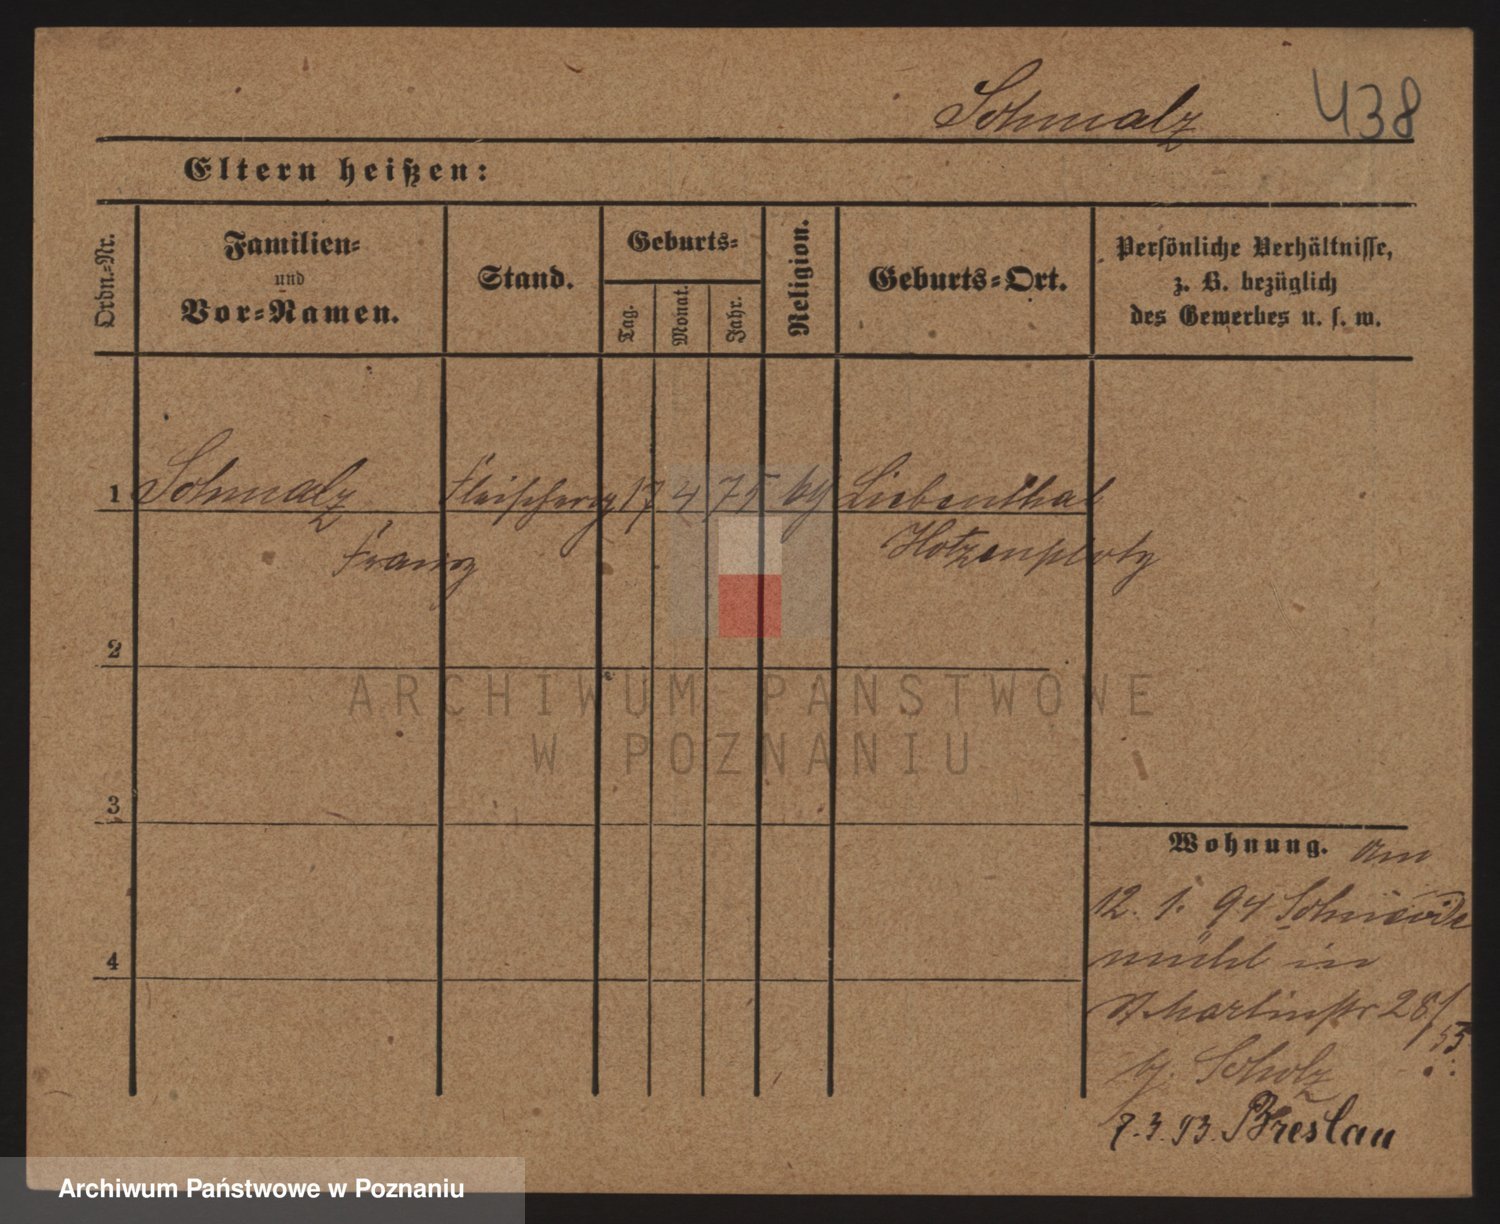 Schmalz 438
Eltern heißen:
Ordn.-Nr.
Familien-
und
Vor-Namen.
Stand.
Geburts-
Tag.
Monat.
Jahr.
Religion.
Geburts-Ort.
Persönliche Verhältnisse,
z. B. bezüglich
des Gewerbes u. s. w.
1 Schmalz 17 4 75 Liebenthal
Franz Hotzenplotz
2
ARCHIWUM PAŃSTWOWE
W POZNANIU
3
4
Wohnung. am
12. 1. 94 Schneide
mühl in
St Martinstr 28/
Scholz
7. 3. 93. Breslau
Archiwum Państwowe w Poznaniu